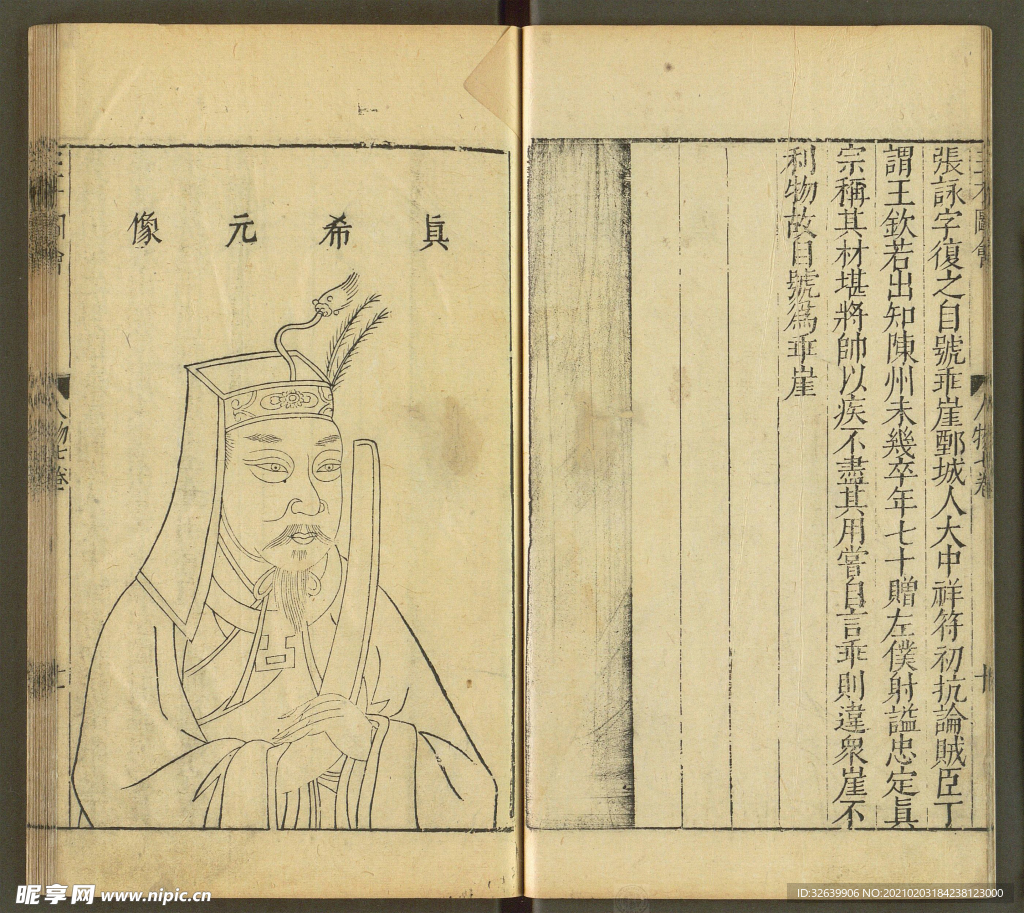 張詠字復之自號乖崖鄄城人大中祥符初抗論賊臣丁
謂王欽若出知陳州未幾卒年七十贈左僕射謚忠定眞
宗稱其材堪將帥以疾不盡其用嘗自言乖則違衆崖不
利物故自號爲乖崖
眞希元像
人物七卷
昵享网 www.nipic.cn
ID:32639906 NO:20210203184238123000